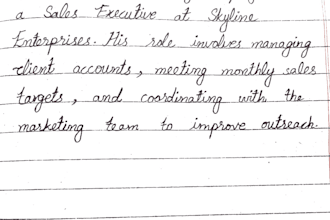 a Sales Executive at Skyline
Enterprises. His role involves managing
client accounts, meeting monthly sales
targets, and coordinating with the
marketing team to improve outreach.